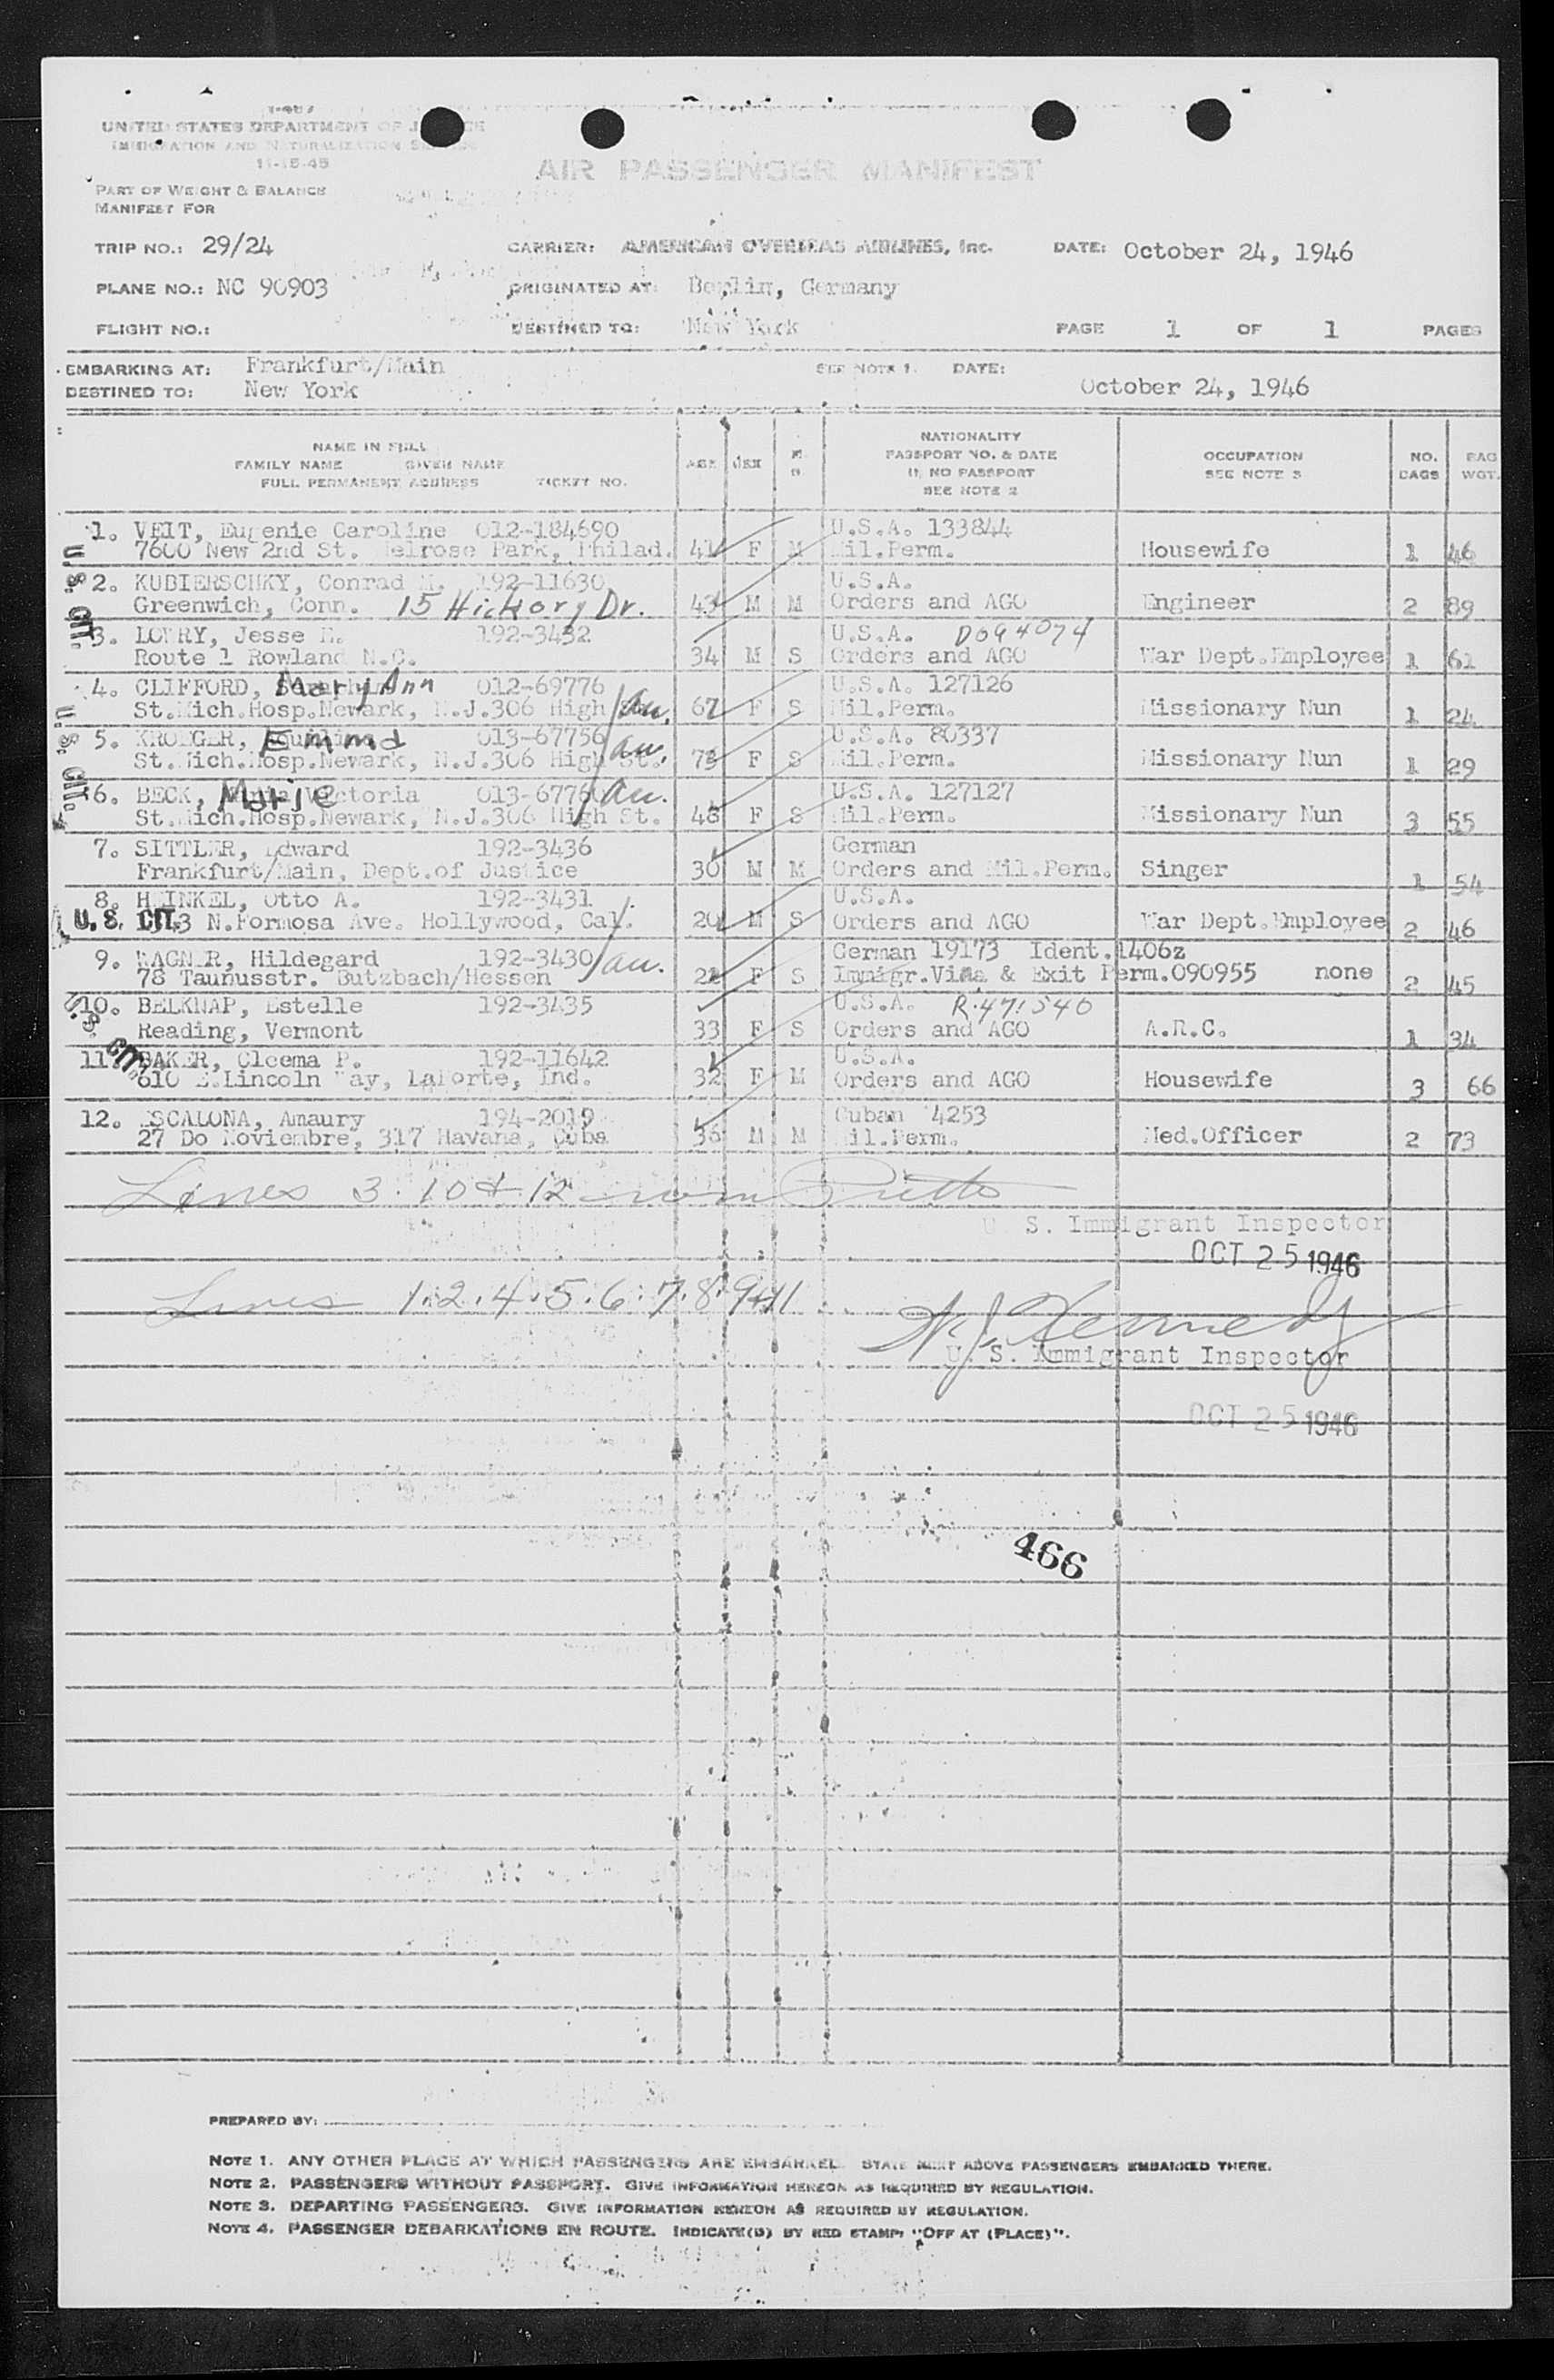 I-487
UNITED STATES DEPARTMENT OF
IMMIGRATION AND NATURALIZATION
11-15-45
AIR PASSENGER MANIFEST
PART OF WEIGHT & BALANCE
MANIFEST FOR
TRIP NO.: 29/24 CARRIER: AMERICAN OVERSEAS AIRLINES, Inc. DATE: October 24, 1946
PLANE NO.: NC 90903 ORIGINATED AT: Berlin, Germany
FLIGHT NO.: DESTINED TO: New York PAGE 1 OF 1 PAGES
EMBARKING AT: Frankfurt/Main SEE NOTE 1. DATE:
DESTINED TO: New York October 24, 1946
NAME IN FULL
FAMILY NAME GIVEN NAME
FULL PERMANENT ADDRESS TICKET NO.
AGE SEX M S
NATIONALITY
PASSPORT NO. & DATE
IF NO PASSPORT
SEE NOTE 2
OCCUPATION
SEE NOTE 3
NO.
BAGS
BAG
WGT.
1. VEIT, Eugenie Caroline 012-184690 U.S.A. 133844
7600 New 2nd St. Melrose Park, Philad. 41 F M Mil.Perm. Housewife 1 46
2. KUBIERSCHKY, Conrad M. 192-11630 U.S.A.
Greenwich, Conn. 15 Hickory Dr. 43 M M Orders and AGO Engineer 2 89
U.S. CIT.
3. LOWRY, Jesse 192-3432 U.S.A. D094074
Route 1 Rowland N.C. 34 M S Orders and AGO War Dept.Employee 1 61
4. CLIFFORD, Mary Ann 012-69776 U.S.A. 127126
St.Mich.Hosp.Newark, N.J.306 High 67 F S Mil.Perm. Missionary Nun 1 24
5. KROEGER, Emma 013-67756 U.S.A. 80337
St.Mich.Hosp.Newark, N.J.306 High St. 73 F S Mil.Perm. Missionary Nun 1 29
U.S. CIT.
6. BECK, Marie Victoria 013-6776 U.S.A. 127127
St.Mich.Hosp.Newark, N.J.306 High St. 48 F S Mil.Perm. Missionary Nun 3 55
7. SITTLER, Edward 192-3436 German
Frankfurt/Main, Dept.of Justice 30 M M Orders and Mil.Perm. Singer 1 54
8. HEINKEL, Otto A. 192-3431 U.S.A.
U.S. CIT. N.Formosa Ave. Hollywood, Cal. 20 M S Orders and AGO War Dept.Employee 2 46
9. WAGNER, Hildegard 192-3430 German 19173 Ident.1406z
78 Taunusstr. Butzbach/Hessen F S Immigr.Visa & Exit Perm.090955 none 2 45
10. BELKNAP, Estelle 192-3435 U.S.A. R.471540
Reading, Vermont 33 F S Orders and AGO A.R.C. 1 34
U.S. CIT.
11. BAKER, Cleema P. 192-11642 U.S.A.
610 E.Lincoln Way, LaPorte, Ind. 32 F M Orders and AGO Housewife 3 66
12. ESCALONA, Amaury 194-2019 Cuban 4253
27 Do Noviembre, 317 Havana, Cuba 36 M M Mil.Perm. Med.Officer 2 73
Lines 3. 10 & 12
U. S. Immigrant Inspector
OCT 25 1946
Lines 1.2.4.5.6.7.8.9+11
Kennedy
U. S. Immigrant Inspector
OCT 25 1946
466
PREPARED BY:
NOTE 1. ANY OTHER PLACE AT WHICH PASSENGERS ARE EMBARKED. STATE NEXT ABOVE PASSENGERS EMBARKED THERE.
NOTE 2. PASSENGERS WITHOUT PASSPORT. GIVE INFORMATION HEREON AS REQUIRED BY REGULATION.
NOTE 3. DEPARTING PASSENGERS. GIVE INFORMATION HEREON AS REQUIRED BY REGULATION.
NOTE 4. PASSENGER DEBARKATIONS EN ROUTE. INDICATE(D) BY RED STAMP: "OFF AT (PLACE)".